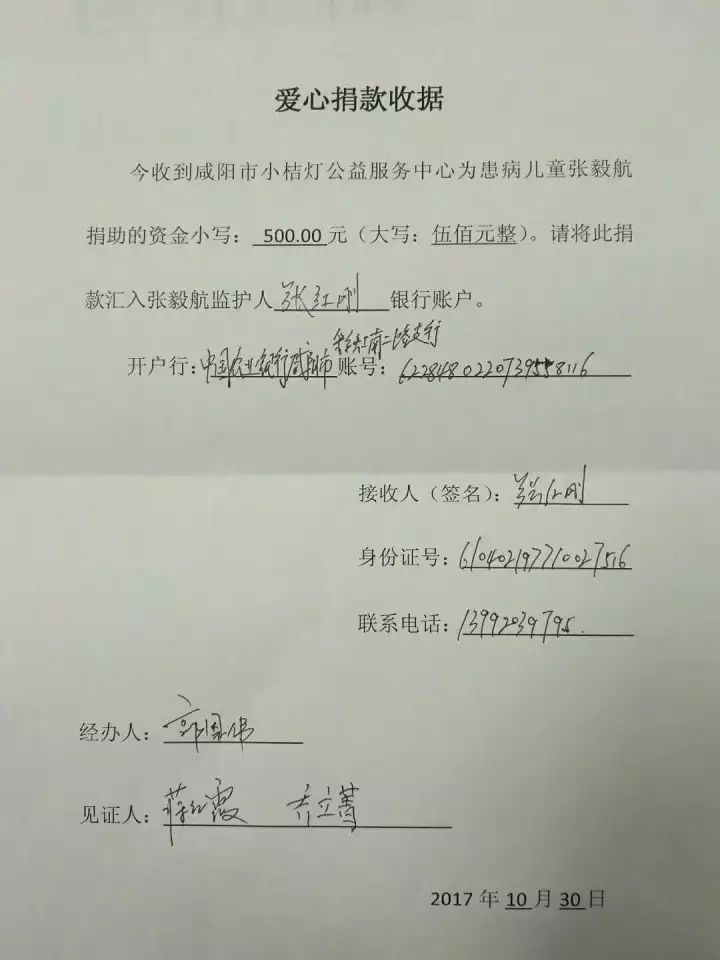 爱心捐款收据
今收到咸阳市小桔灯公益服务中心为患病儿童张毅航
捐助的资金小写：500.00元（大写：伍佰元整）。请将此捐
款汇入张毅航监护人张红刚银行账户。
南二路支行
开户行：中国农业银行咸阳市账号：6228480220739558116
接收人（签名）：张红刚
身份证号：610402197710027516
联系电话：13992039795.
经办人：郭国伟
见证人：蒋红霞 乔立菁
2017年10月30日